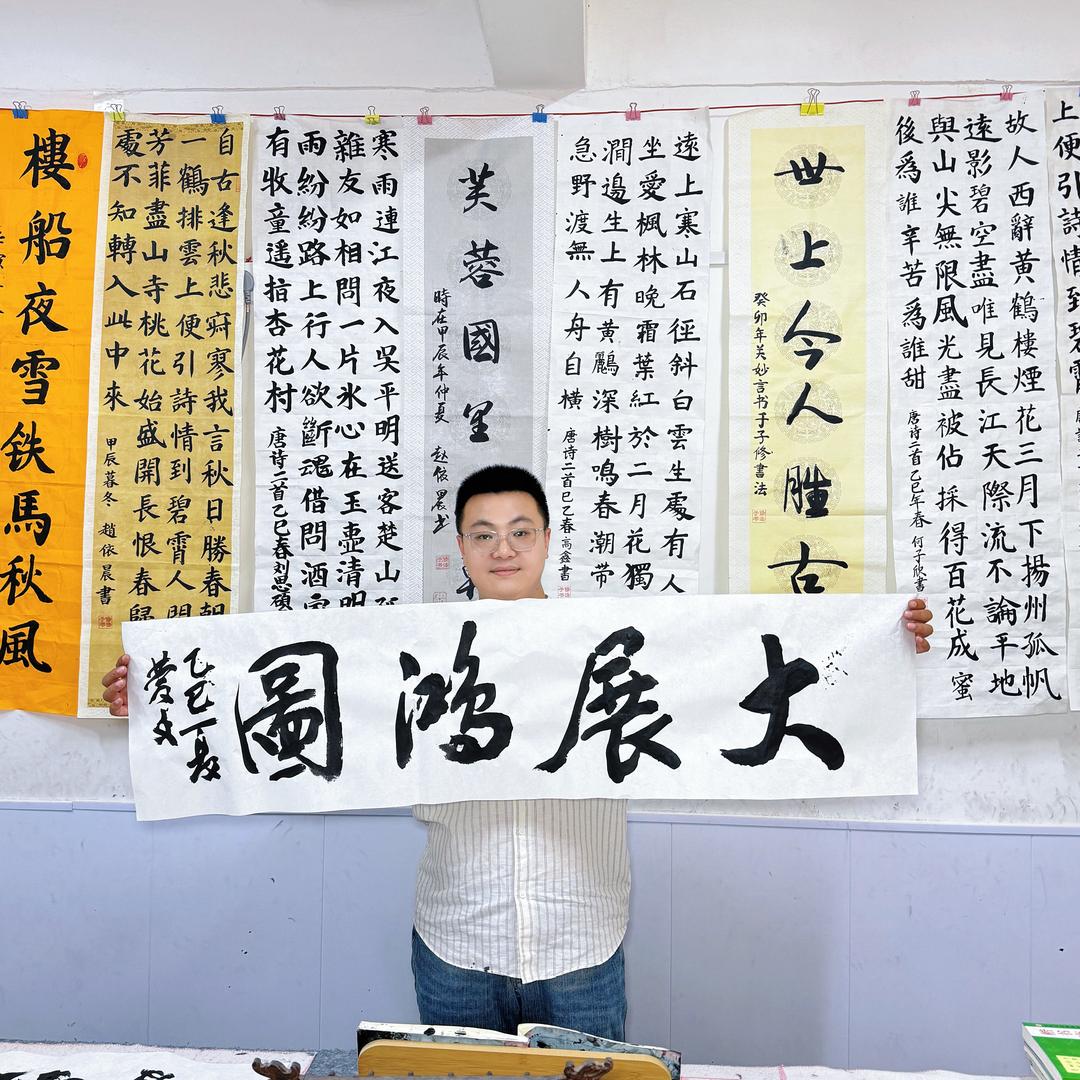 上便引詩情到碧霄
故人西辭黃鶴樓煙花三月下揚州孤帆
遠影碧空盡唯見長江天際流不論平地
與山尖無限風光盡被佔採得百花成蜜
後爲誰辛苦爲誰甜 唐诗二首乙巳年春 何子欣書
世上今人勝古
癸卯年关妙言书于子修書法
遠上寒山石徑斜白雲生處有人
坐愛楓林晚霜葉紅於二月花獨
澗邊生上有黃鸝深樹鳴春潮帶
急野渡無人舟自橫 唐诗二首乙巳春高鑫書
芙蓉國里
時在甲辰年仲夏 赵依晨书
寒雨連江夜入吳平明送客楚山孤
雜友如相問一片氷心在玉壺清明
雨紛紛路上行人欲斷魂借問酒家
有收童遥指杏花村 唐诗二首乙巳春刘思颖
自古逢秋悲寂寥我言秋日勝春朝
一鶴排雲上便引詩情到碧霄人間
芳菲盡山寺桃花始盛開長恨春歸
處不知轉入此中來 甲辰暮冬 趙依晨書
樓船夜雪铁馬秋風
大展鴻圖
乙巳夏